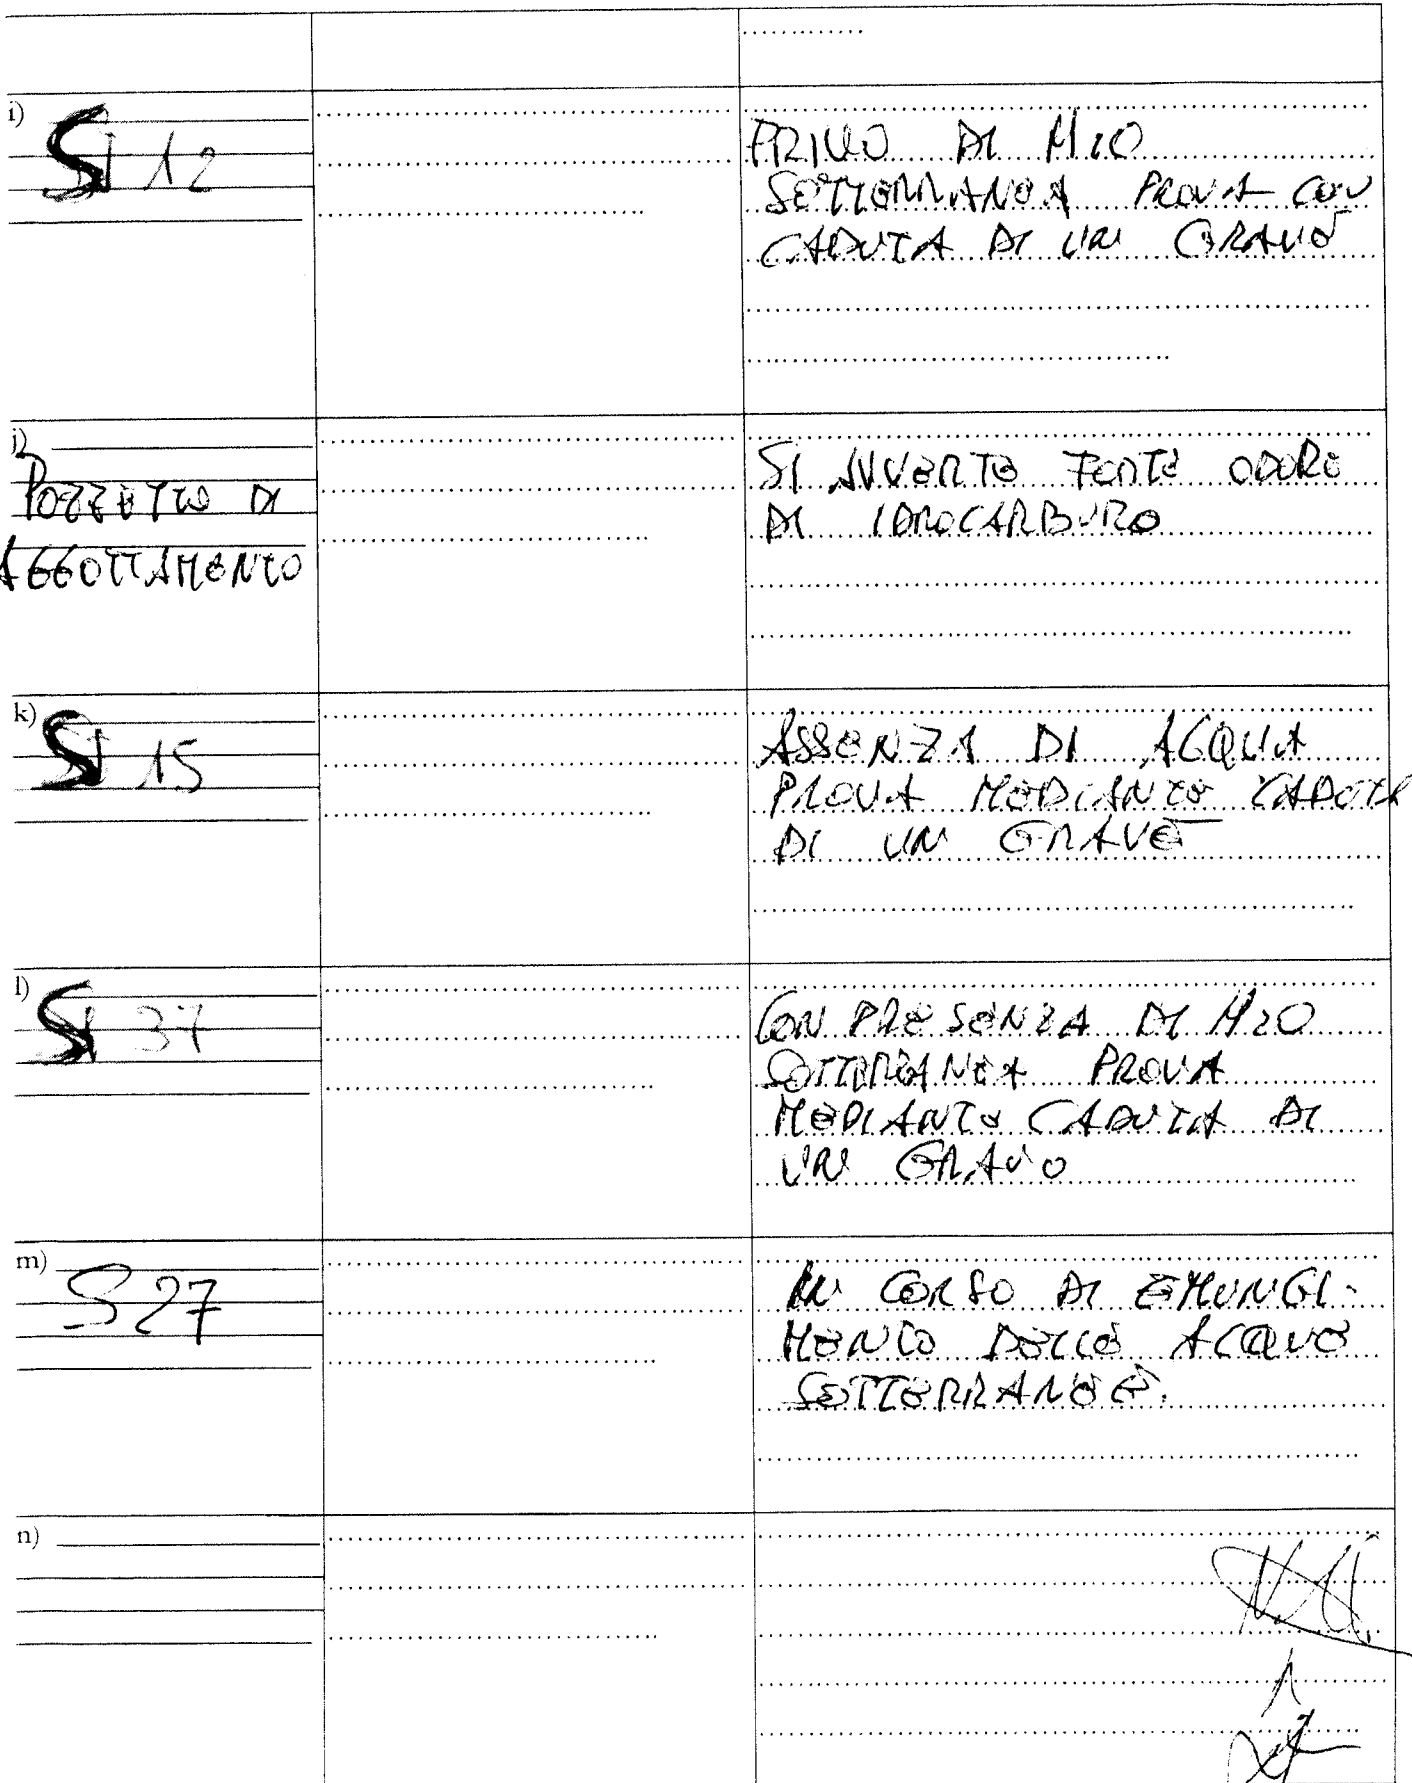 i) SI 12
PRIVO DI H2O
SOTTERRANEA PROVA CON
CADUTA DI UN GRAVE
j)
POZZETTO DI
AGGOTTAMENTO
SI AVVERTE FORTE ODORE
DI IDROCARBURO
k) SI 15
ASSENZA DI ACQUA
PROVA MEDIANTE CADUTA
DI UN GRAVE
l) SI 37
CON PRESENZA DI H2O
SOTTERRANEA PROVA
MEDIANTE CADUTA DI
UN GRAVE
m) S 27
IN CORSO DI EMUNGI-
MENTO DELLE ACQUE
SOTTERRANEE.
n)